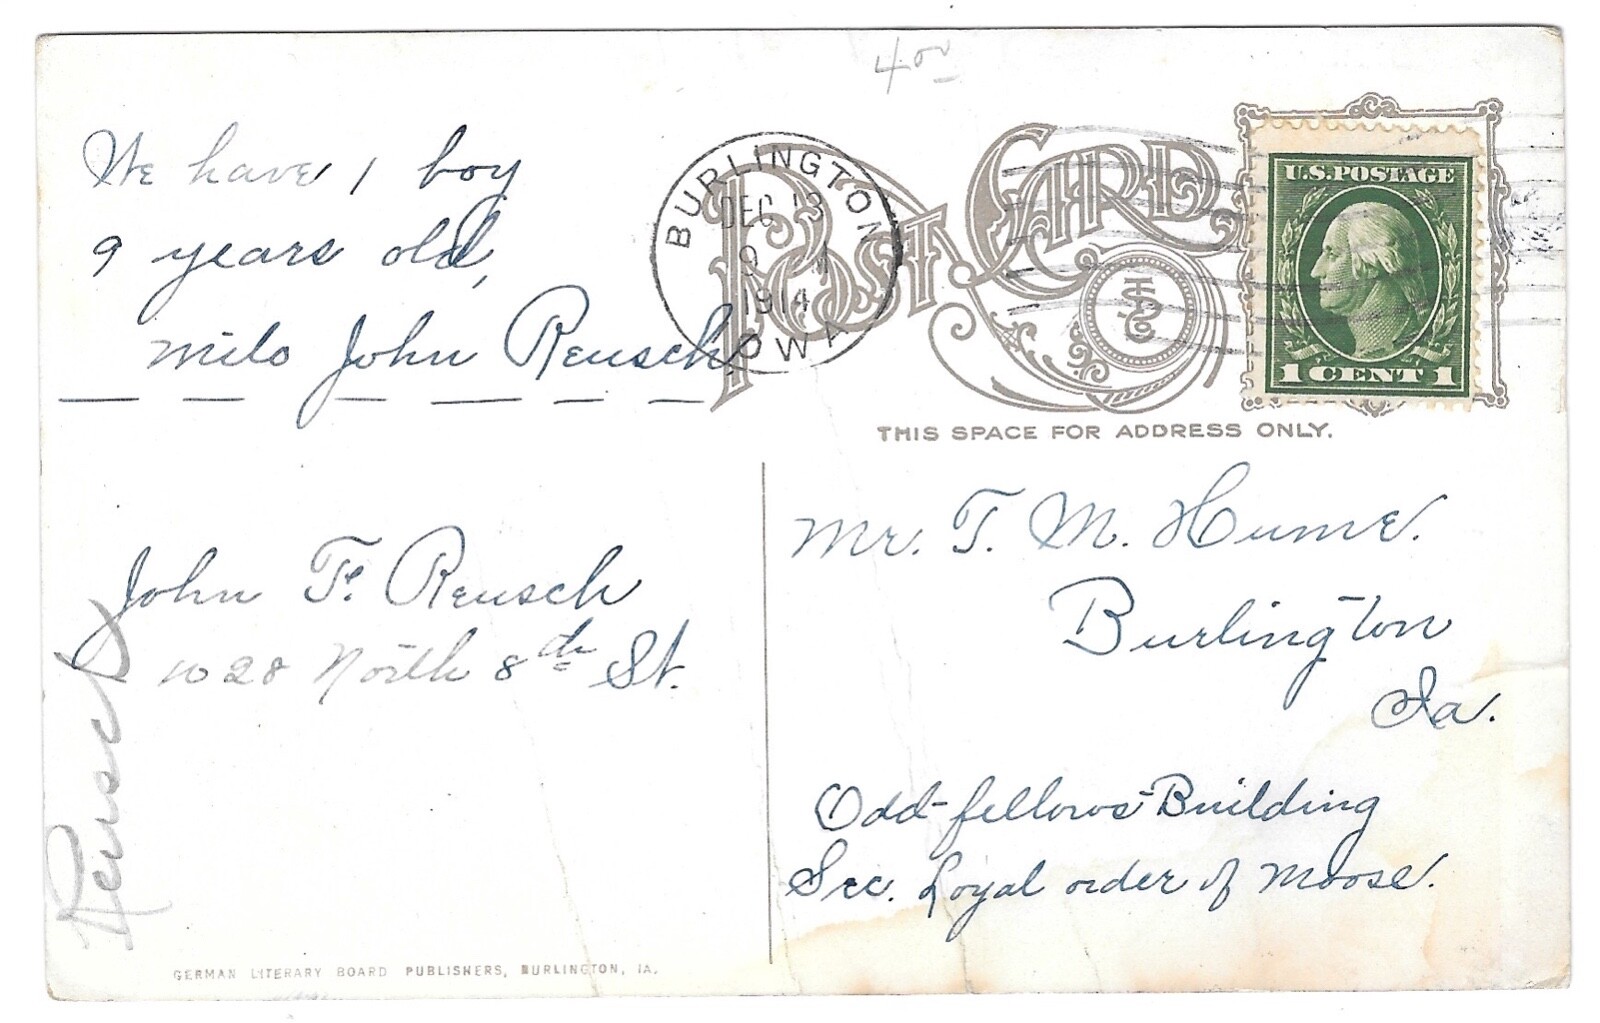 4.00
We have 1 boy
9 years old,
Milo John Reusch
BURLINGTON
DEC 13
9
1914
IOWA
POST CARD
U.S. POSTAGE
1 CENT 1
THIS SPACE FOR ADDRESS ONLY.
John F. Reusch
1028 North 8th St.
Reusch
Mr. T. M. Hume.
Burlington
Ia.
Odd-fellows-Building
Sec. Loyal order of Moose.
GERMAN LITERARY BOARD PUBLISHERS, BURLINGTON, IA.